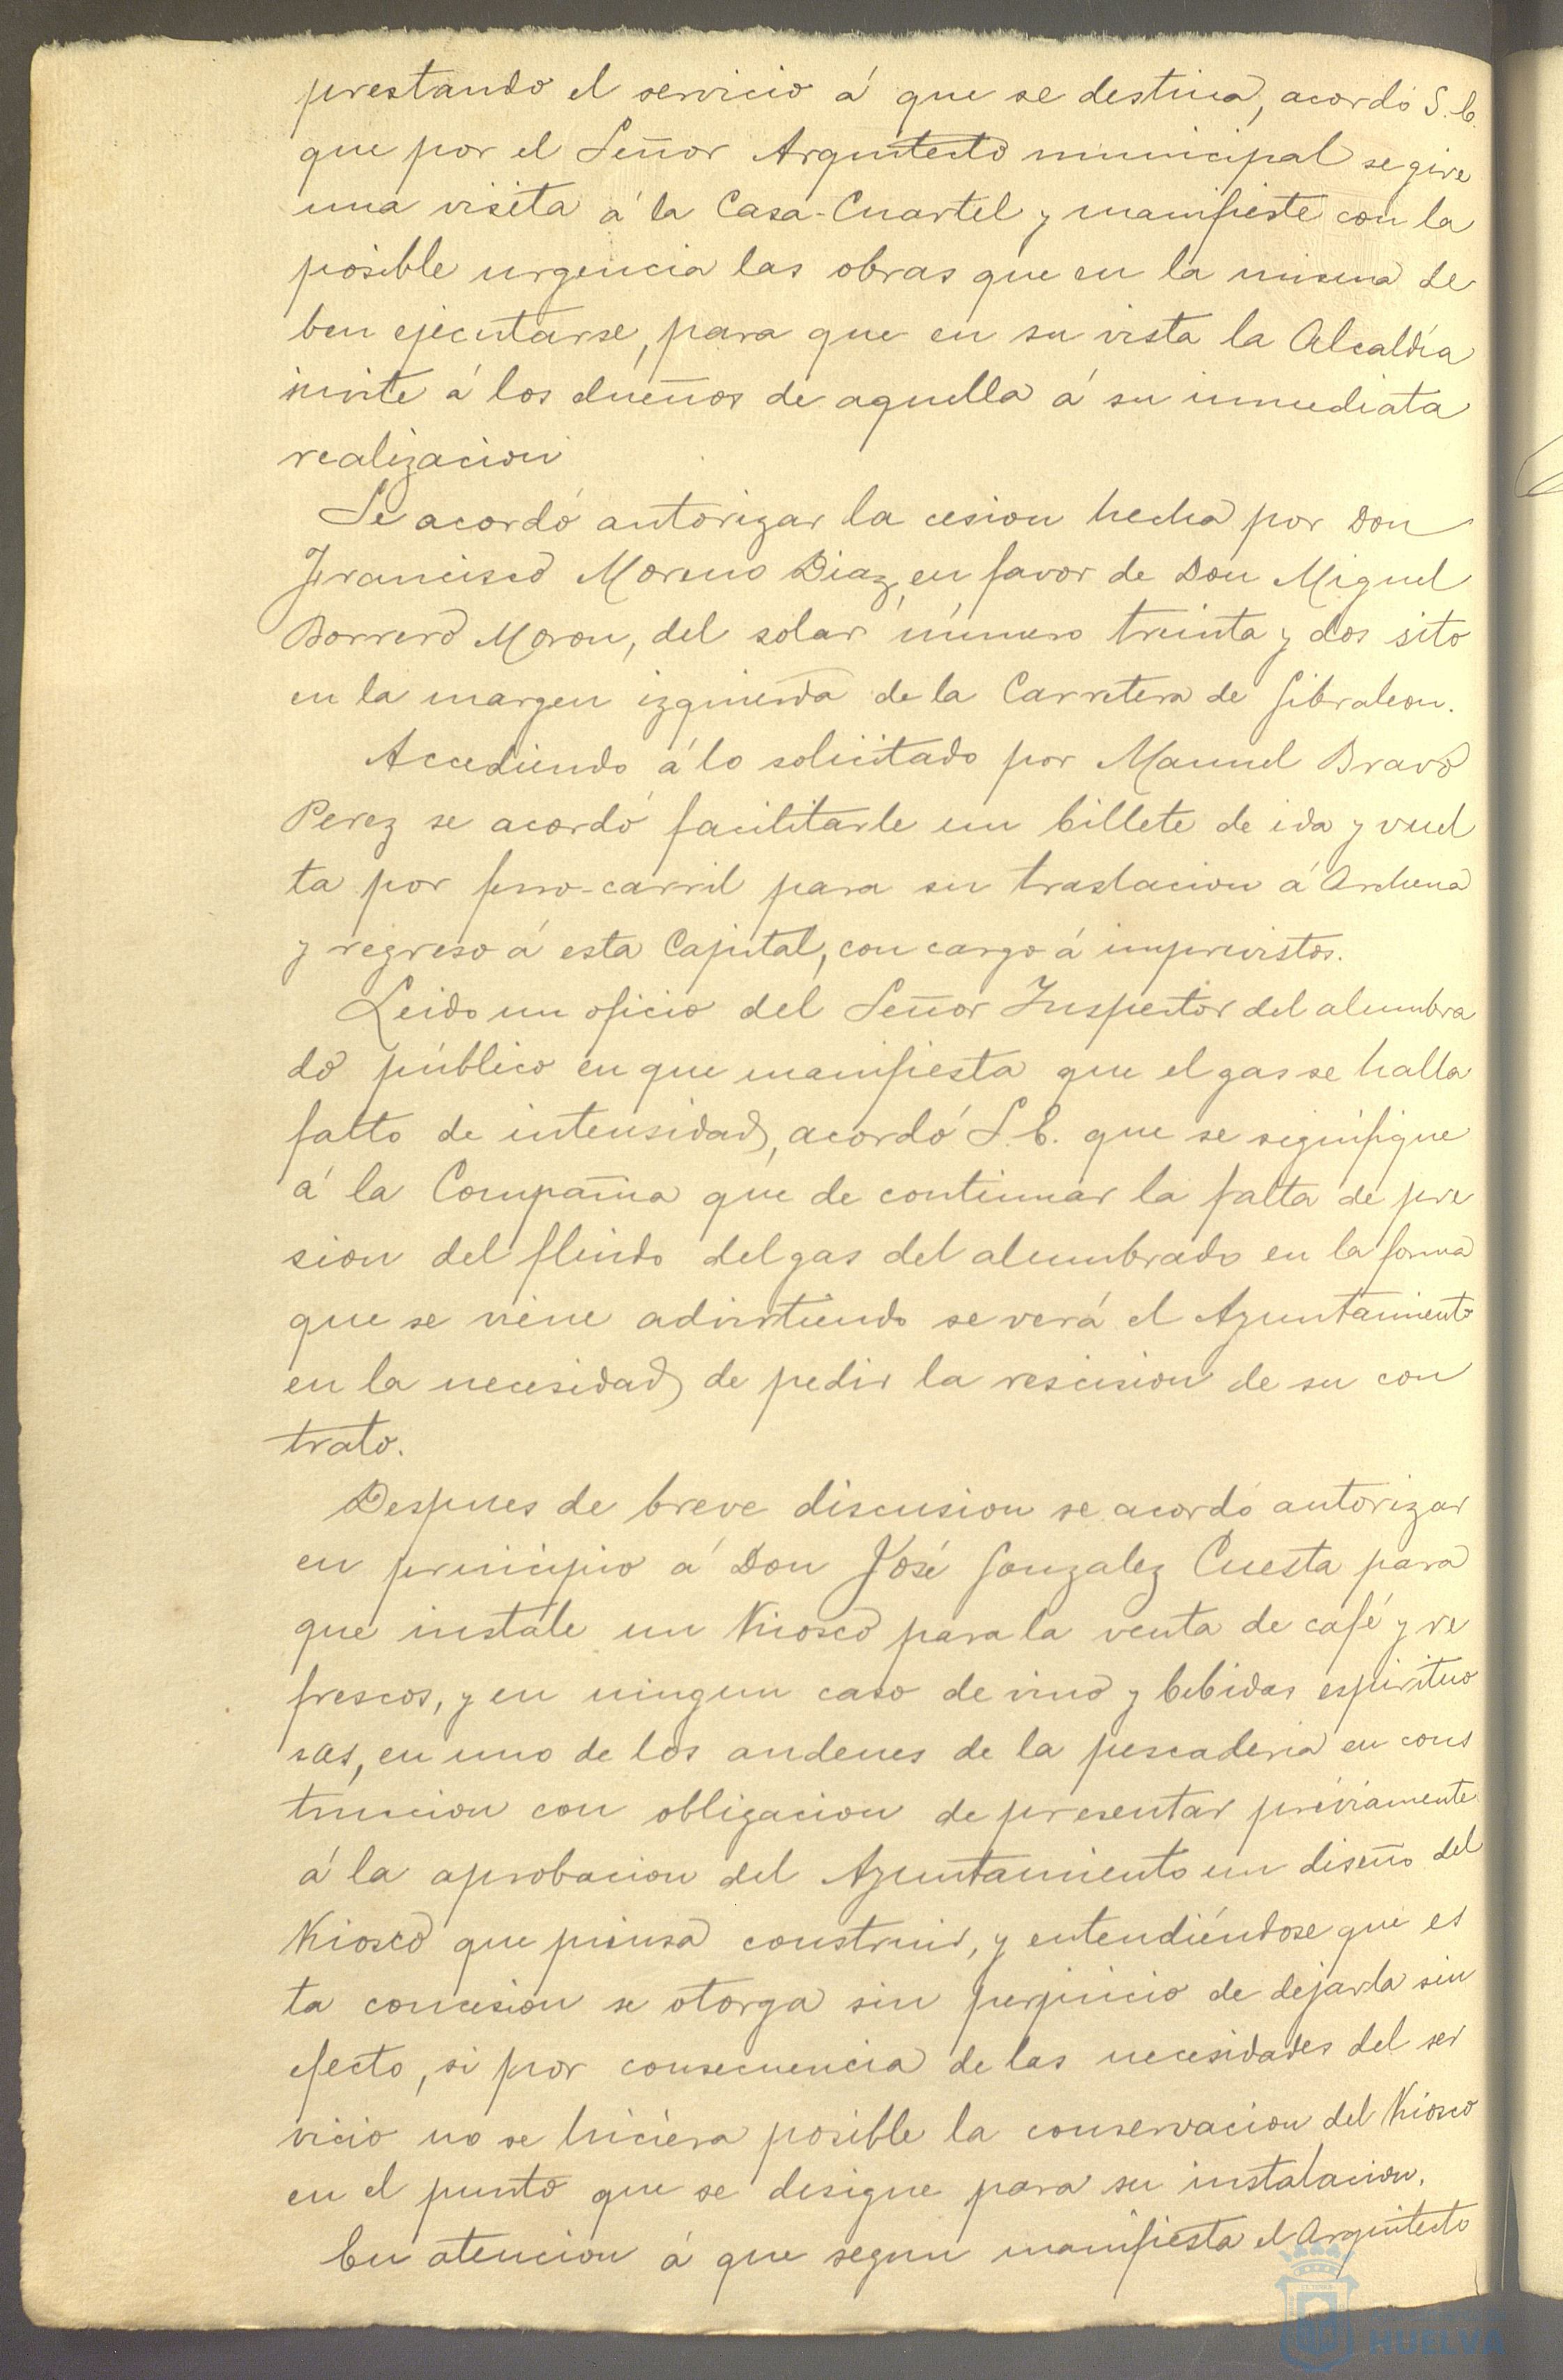 prestando el servicio á que se destina, acordó S. E.
que por el Señor Arquitecto municipal se gire
una visita á la Casa-Cuartel y manifieste con la
posible urgencia las obras que en la misma de
ben ejecutarse, para que en su vista la Alcaldía
invite á los dueños de aquella á su inmediata
realizacion
Se acordó autorizar la cesion hecha por Don
Francisco Moreno Diaz, en favor de Don Miguel
Borrero Moron, del solar número treinta y dos sito
en la margen izquierda de la Carretera de Gibraleon.
Accediendo á lo solicitado por Manuel Bravo
Perez se acordó facilitarle un billete de ida y vuel
ta por ferro-carril para su traslacion á Archena
y regreso á esta Capital, con cargo á imprevistos.
Leido un oficio del Señor Inspector del alumbra
do público en que manifiesta que el gas se halla
falto de intensidad, acordó S. E. que se signifique
á la Compañia que de continuar la falta de pre
sion del fluido del gas del alumbrado en la forma
que se viene advirtiendo se verá el Ayuntamiento
en la necesidad de pedir la rescision de su con
trato.
Despues de breve discusion se acordó autorizar
en principio á Don José Gonzalez Cuesta para
que instale un Kiosco para la venta de café y re
frescos, y en ningun caso de vino y bebidas espirituo
sas, en uno de los andenes de la pescaderia en cons
truccion con obligacion de presentar préviamente
á la aprobacion del Ayuntamiento un diseño del
Kiosco que piensa construir, y entendiéndose que es
ta concesion se otorga sin perjuicio de dejarla sin
efecto, si por consecuencia de las necesidades del ser
vicio no se hiciera posible la conservacion del Kiosco
en el punto que se designe para su instalacion.
En atencion á que segun manifiesta el Arquitecto
HUELVA